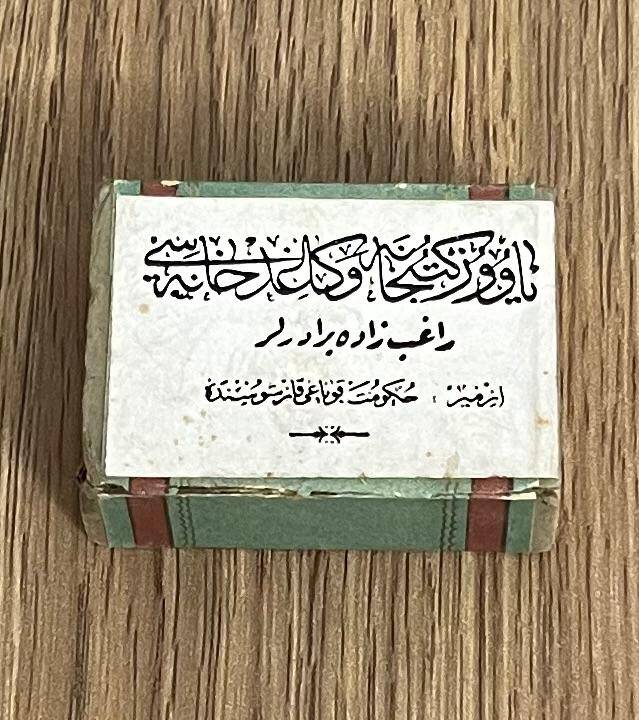 یاووز کتبخانه و کاغدخانه‌سی
راغب زاده برادرلر
ازمیر : حکومت قوناغی قارشوسنده